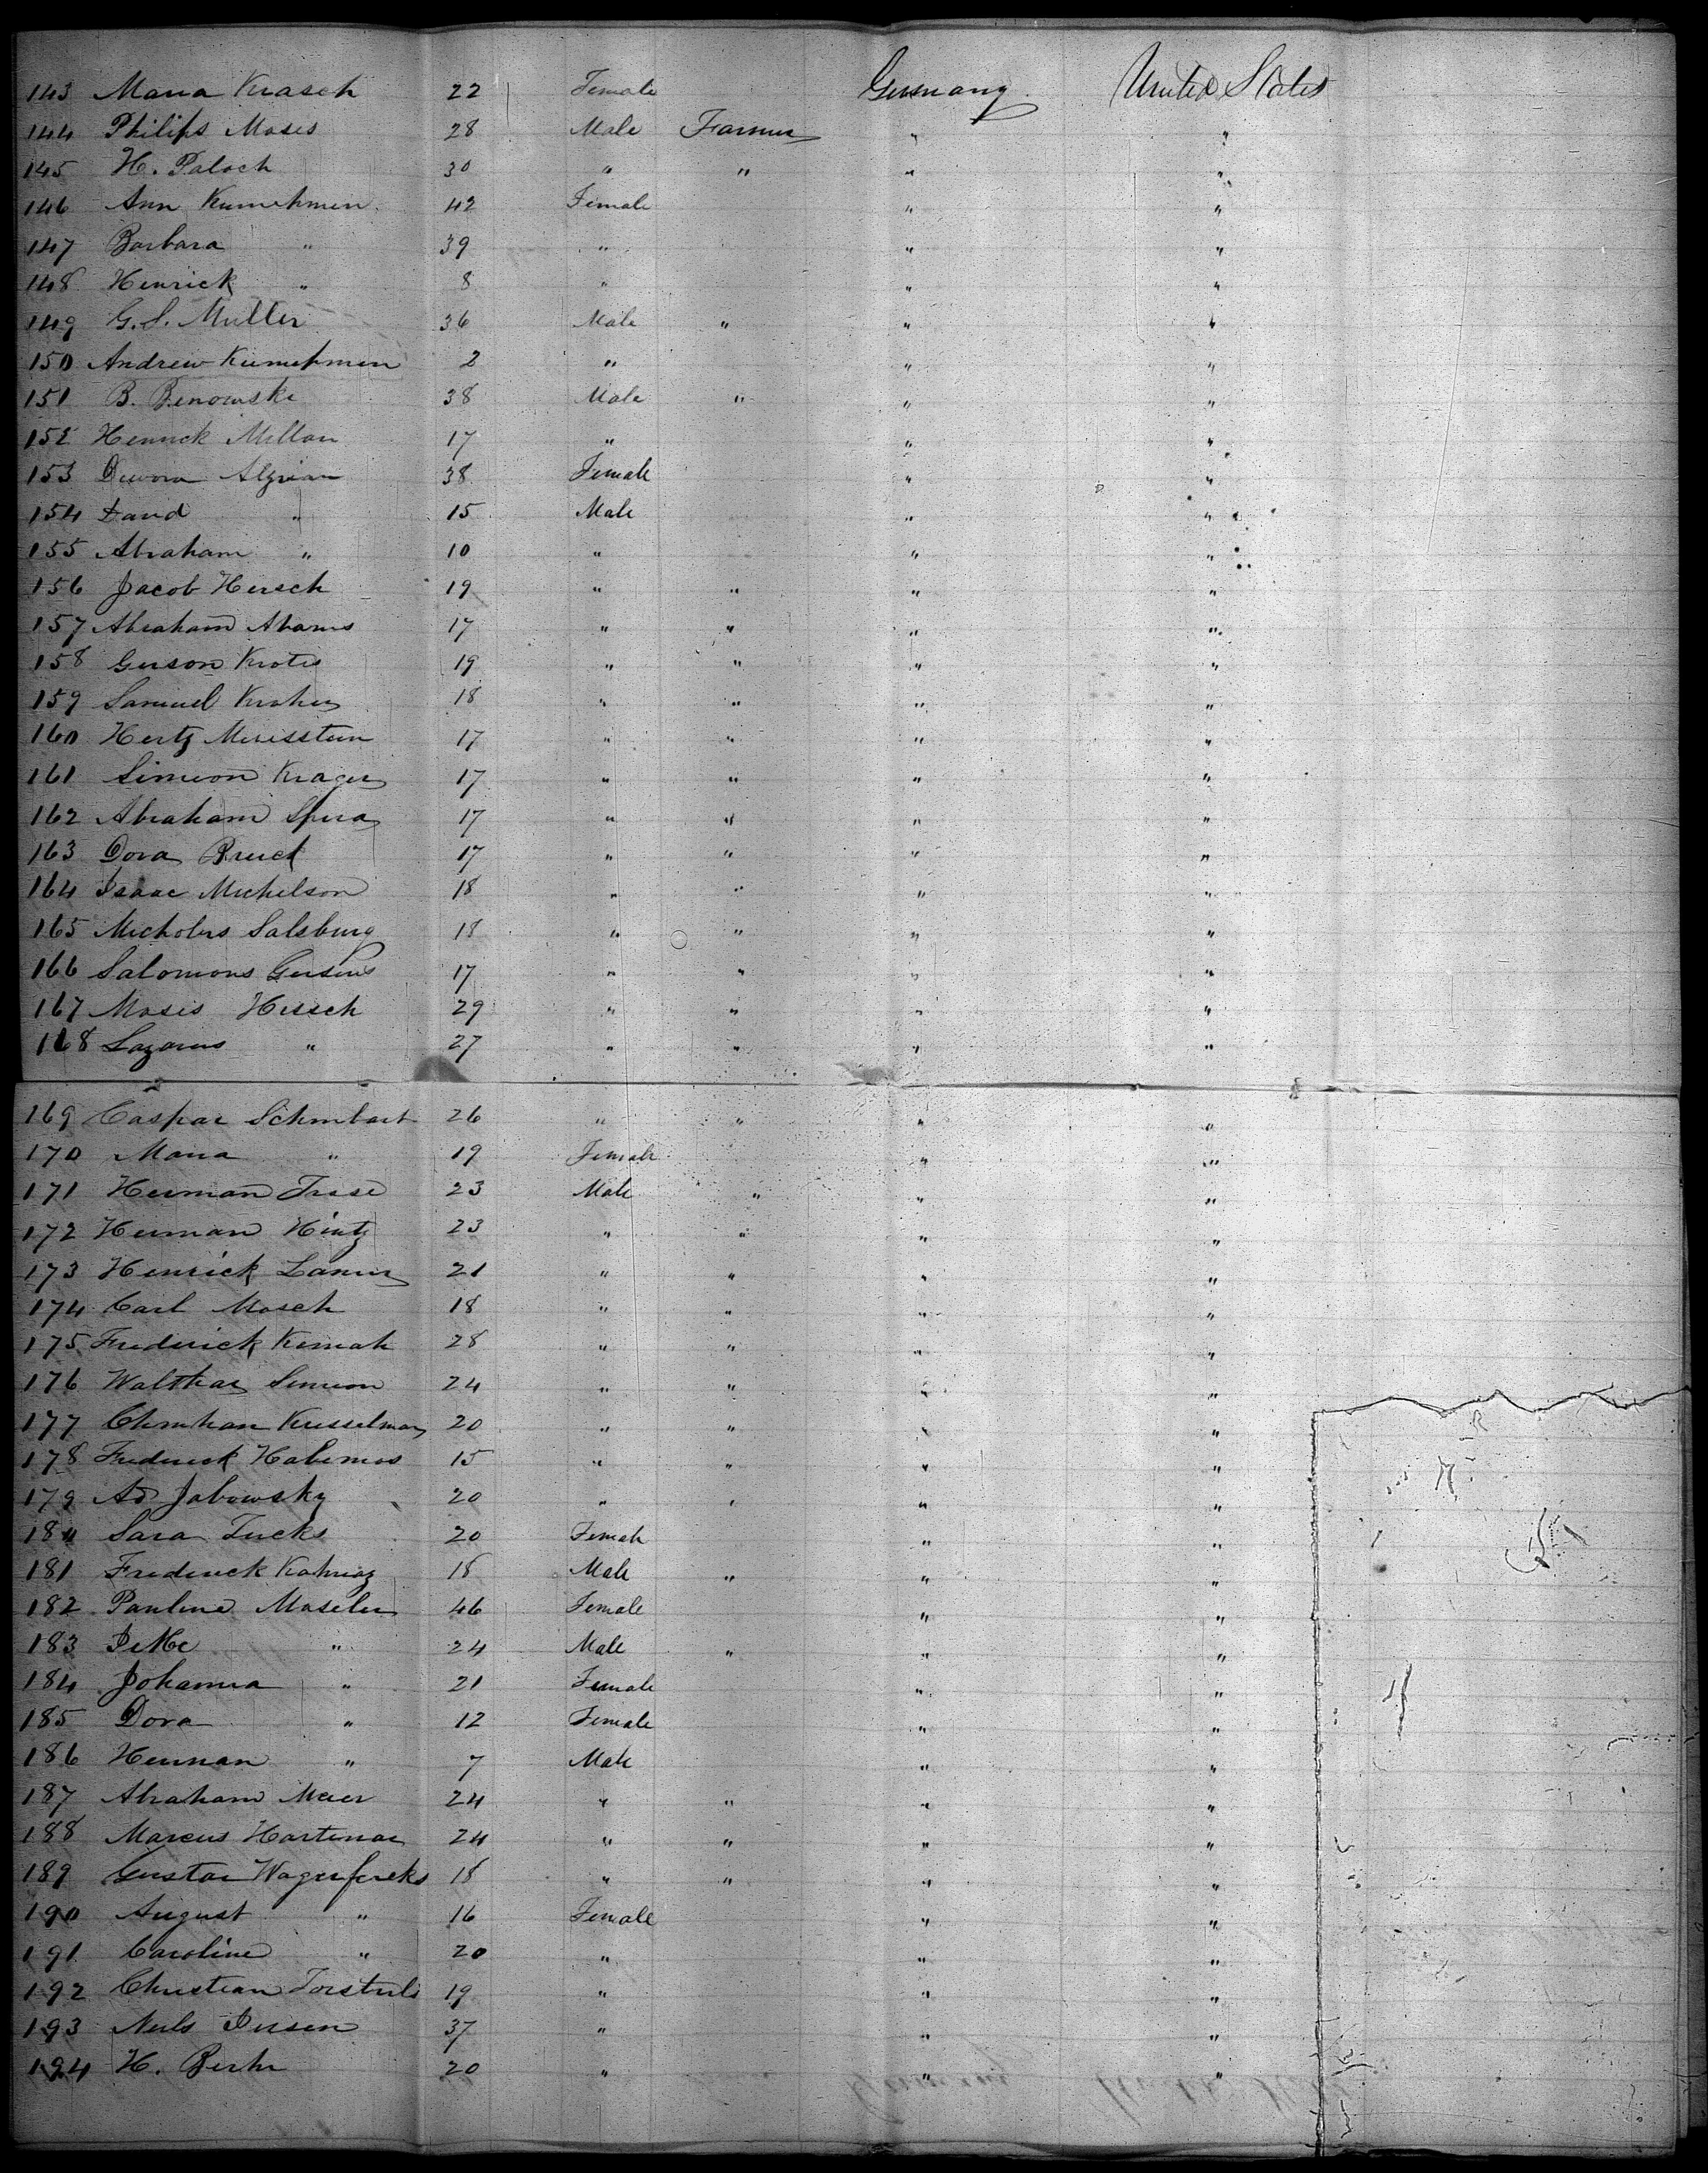 143 Maria Krasch 22 Female Germany United States
144 Philips Moses 28 Male Farmer " "
145 H. Paloch 30 " " " "
146 Ann Kumehmen 42 Female " "
147 Barbara " 39 " " "
148 Henrick " 8 " " "
149 G. S. Muller 36 Male " " "
150 Andrew Kumehmen 2 " " "
151 B. Benowske 38 Male " " "
152 Henrick Millan 17 " " "
153 Dewora 38 Female " "
154 David " 15 Male " "
155 Abraham " 10 " " "
156 Jacob Hersch 19 " " " "
157 Abraham Abrams 17 " " " "
158 Gerson Krotes 19 " " " "
159 Samuel 18 " " " "
160 Hertz 17 " " " "
161 Simeon Krager 17 " " " "
162 Abraham Spira 17 " " " "
163 Dora 17 " " " "
164 Isaac Michelson 18 " " " "
165 Micholers Salsburg 18 " " " "
166 Salomons Gersens 17 " " " "
167 Moses Hersch 29 " " " "
168 Lazarus " 27 " " " "
169 Caspar Schmbart 26 " " " "
170 Maria " 19 Female " "
171 Herman Trase 23 Male " " "
172 Herman Hintz 23 " " " "
173 Henrick 21 " " " "
174 Carl Mosch 18 " " " "
175 Frederick Kemah 28 " " " "
176 Walthar Simeon 24 " " " "
177 Christian Kusselman 20 " " " "
178 Frederick 15 " " " "
179 Ad Jabowsky 20 " " " "
180 Sara Tucks 20 Female " "
181 Frederick 18 Male " " "
182 Pauline Moseler 46 Female " "
183 " 24 Male " " "
184 Johanna " 21 Female " "
185 Dora " 12 Female " "
186 Herman " 7 Male " "
187 Abraham Meier 24 " " " "
188 Marcus 24 " " " "
189 Gustav 18 " " " "
190 August " 16 Female " "
191 Caroline " 20 " " "
192 Christian 19 " " "
193 Neils 37 " " "
194 H. 20 " " "